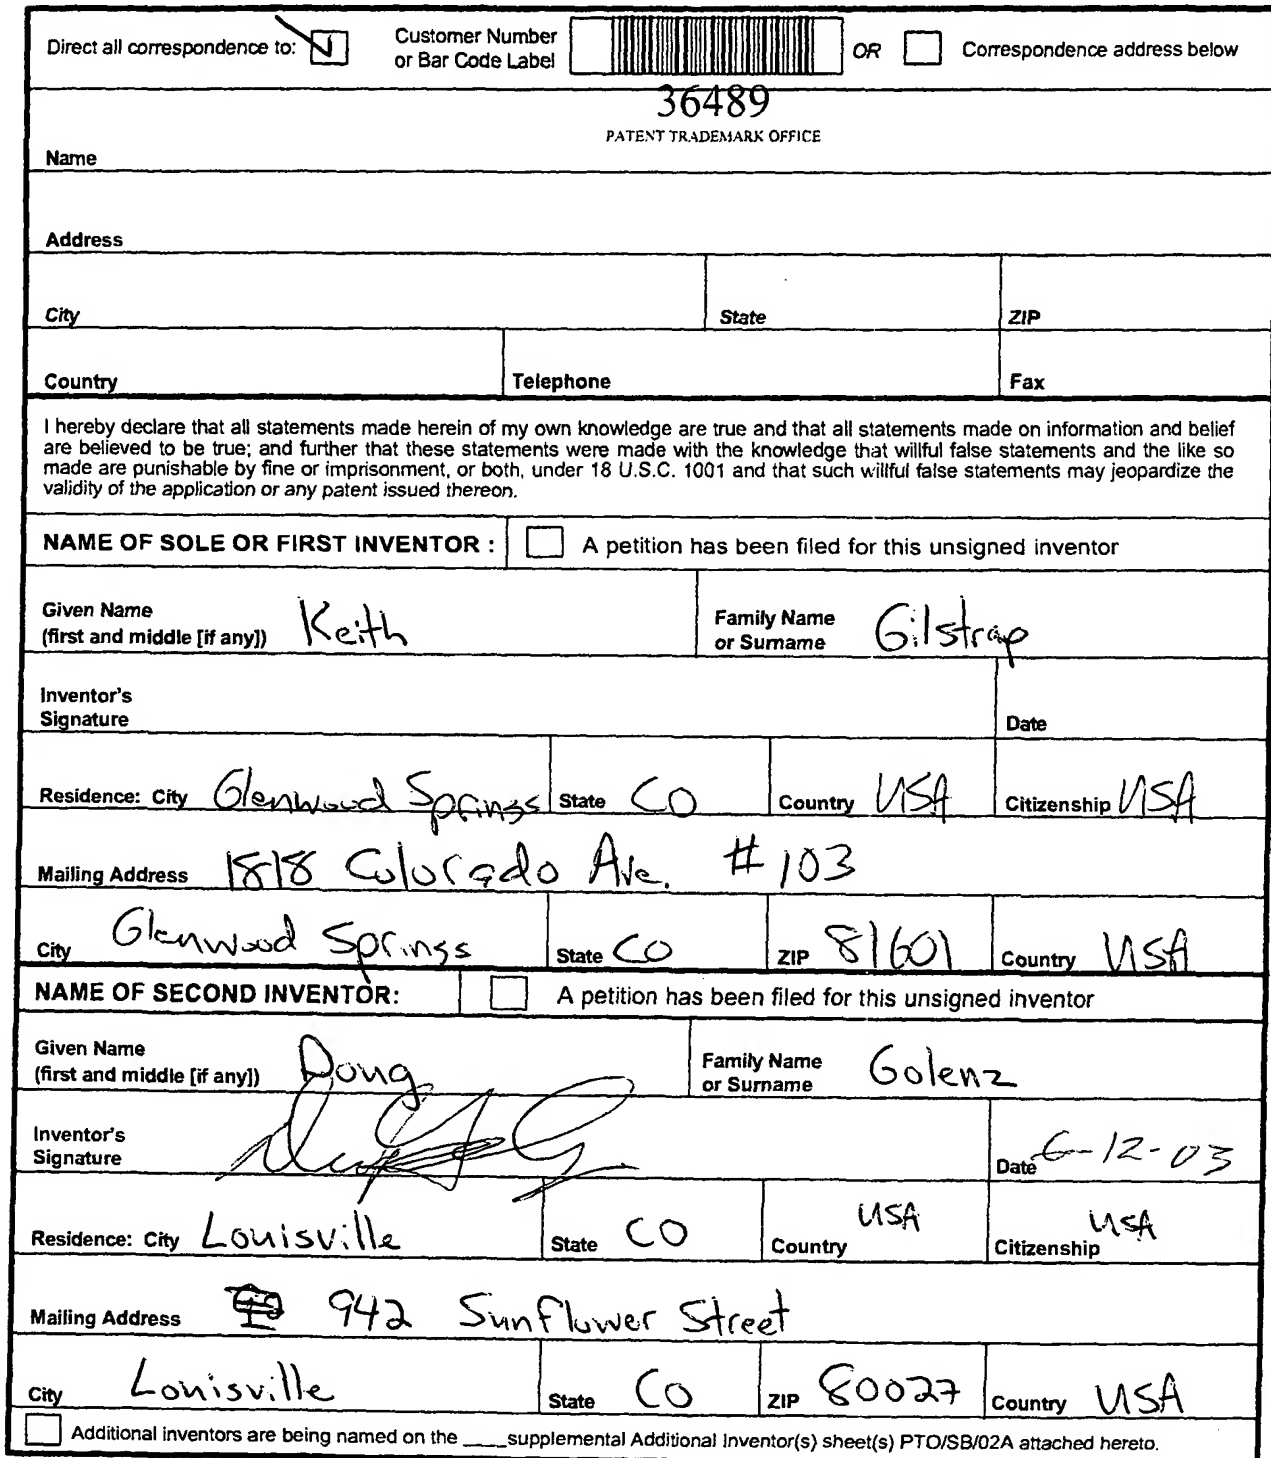 Direct all correspondence to: Customer Number or Bar Code Label OR Correspondence address below
36489
PATENT TRADEMARK OFFICE
Name
Address
City State ZIP
Country Telephone Fax
I hereby declare that all statements made herein of my own knowledge are true and that all statements made on information and belief
are believed to be true; and further that these statements were made with the knowledge that willful false statements and the like so
made are punishable by fine or imprisonment, or both, under 18 U.S.C. 1001 and that such willful false statements may jeopardize the
validity of the application or any patent issued thereon.
NAME OF SOLE OR FIRST INVENTOR : A petition has been filed for this unsigned inventor
Given Name (first and middle [if any]) Keith Family Name or Surname Gilstrap
Inventor's Signature Date
Residence: City Glenwood Springs State CO Country USA Citizenship USA
Mailing Address 1818 Colorado Ave. # 103
City Glenwood Springs State CO ZIP 81601 Country USA
NAME OF SECOND INVENTOR: A petition has been filed for this unsigned inventor
Given Name (first and middle [if any]) Doug Family Name or Surname Golenz
Inventor's Signature Date 6-12-03
Residence: City Louisville State CO Country USA Citizenship USA
Mailing Address 942 Sunflower Street
City Louisville State CO ZIP 80027 Country USA
Additional inventors are being named on the ____supplemental Additional Inventor(s) sheet(s) PTO/SB/02A attached hereto.